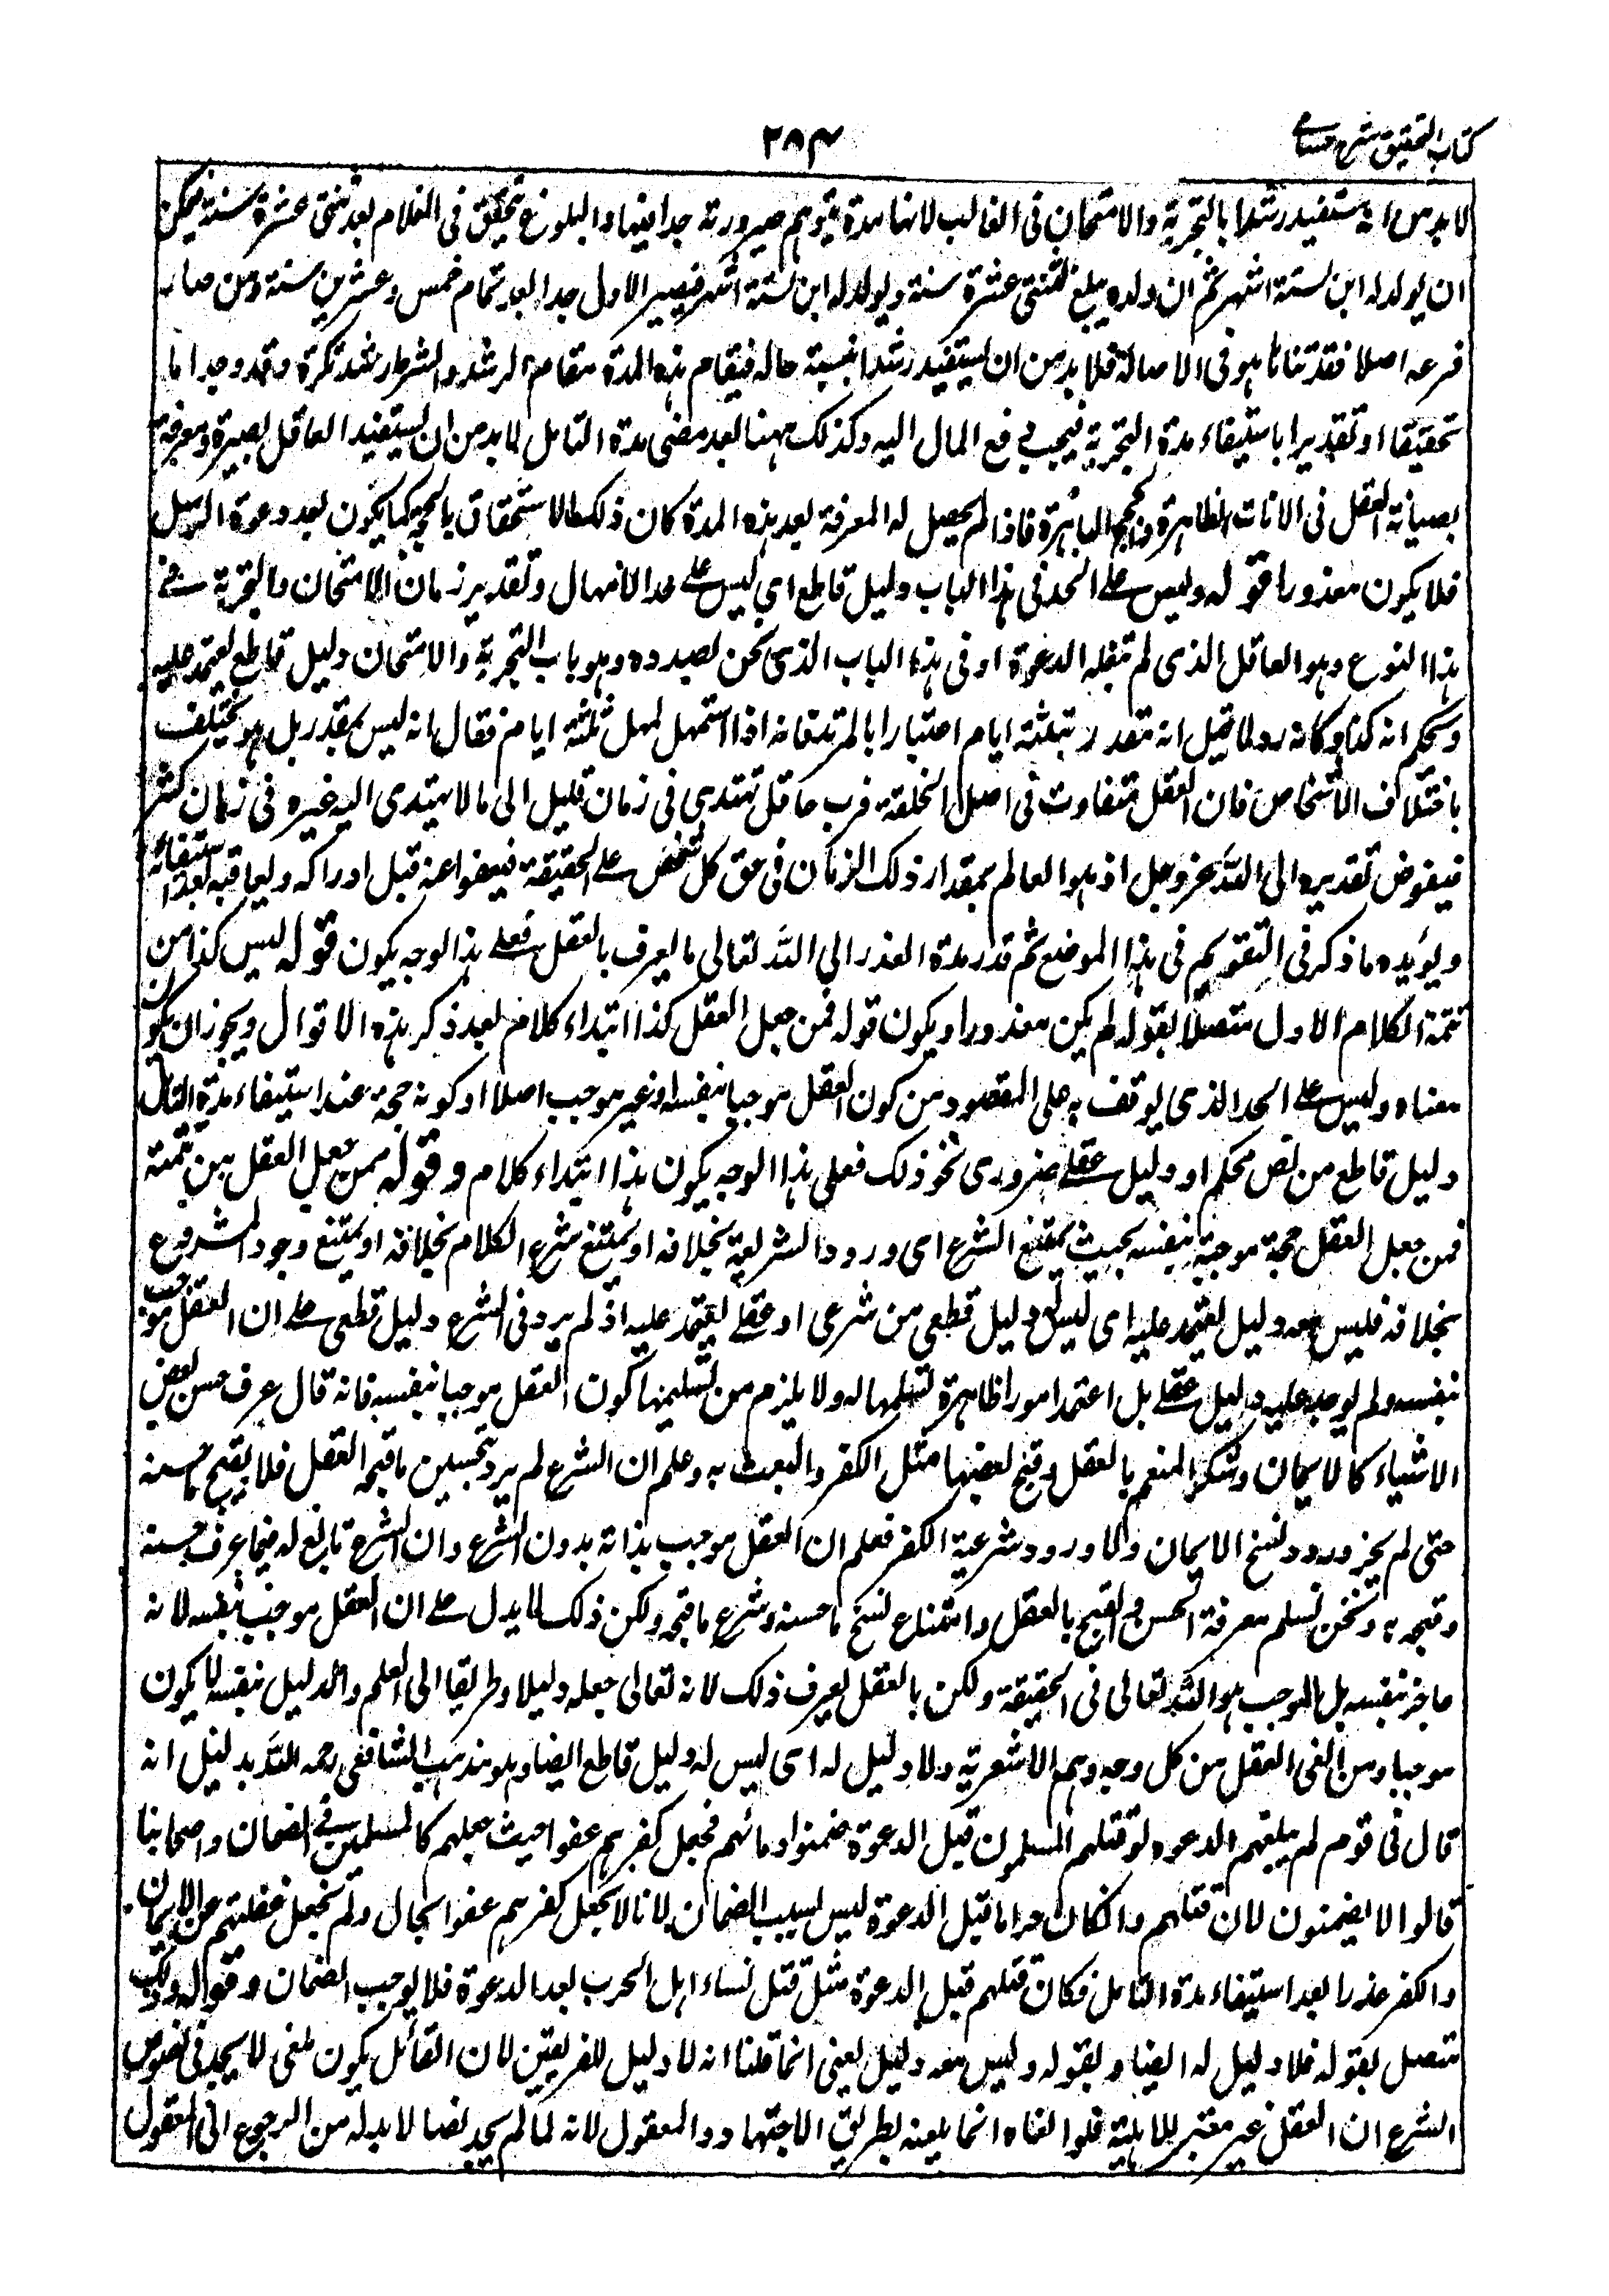 كتاب التحقيق شرح حسامی
٢٨٣
لا بد من ان يستفيد رشدا بالتجربة والامتحان فى الغالب لانها مدة يتوهم صيرورته جدا فيها والبلوغ يتحقق فى الغلام بعد ثنتى عشرة سنة فيمكن
ان يولد له ابن لستة اشهر ثم ان ولده يبلغ لثنتى عشرة سنة ويولد له ابن لستة اشهر فيصير الاول جدا بعد تمام خمس وعشرين سنة ومن صار
فرعه اصلا فقد تناها هو فى الاصالة فلا بد من ان يستفيد رشدا بنسبة حاله فيقام هذه المدة مقام الرشد والشرط رشد نكرة وقد وجد اما
تحقيقا او تقديرا باستيفاء مدة التجربة فيجب دفع المال اليه وكذلك ههنا بعد مضى مدة التامل لا بد من ان يستفيد العاقل بصيرة ومعرفة
بصيانة العقل فى الايات الظاهرة والحجج الباهرة فاذا لم يحصل له المعرفة بعد هذه المدة كان ذلك لاستخفاف بالحجة كما يكون بعد دعوة الرسل
فلا يكون معذورا قوله وليس على الحد فى هذا الباب دليل قاطع اى ليس على حد الامهال وتقدير زمان الامتحان والتجربة فى
هذا النوع وهو العاقل الذى لم تبلغه الدعوة او فى هذا الباب الذى نحن بصدده وهو باب التجربة والامتحان دليل قاطع يعتمد عليه
ويحكم انه كذا وكانه رد لما قيل انه مقدر بثلثة ايام اعتبارا بالمرتد فانه اذا استمهل يمهل ثلثة ايام فقال انه ليس بمقدر بل هو يختلف
باختلاف الاشخاص فان العقل متفاوت فى اصل الخلقة فرب عاقل يهتدى فى زمان قليل الى ما لا يهتدى اليه غيره فى زمان كثير
فيفوض تقديره الى الله عز وجل اذ هو العالم بمقدار ذلك الزمان فى حق كل شخص على الحقيقة فيعفو عنه قبل ادراكه ويعاقبه بعد استيفائه
ويؤيده ما ذكر فى التقويم فى هذا الموضع ثم قدر مدة العذر الى الله تعالى ما يعرف بالعقل فعلى هذا الوجه يكون قوله ليس كذا من
تتمة الكلام الاول متصلا بقوله لم يكن معذورا ويكون قوله فمن جعل العقل كذا ابتداء كلام بعد ذكر هذه الاقوال ويجوز ان يكون
معناه وليس على الحد الذى يوقف به على المقصود من كون العقل موجبا بنفسه او غير موجب اصلا او كونه حجة عند استيفاء مدة التامل
دليل قاطع من نص محكم او دليل عقلى ضرورى نحو ذلك فعلى هذا الوجه يكون هذا ابتداء كلام وقوله فمن جعل العقل من تتمته
فمن جعل العقل حجة موجبة بنفسه بحيث يمتنع الشرع اى ورود الشريعة بخلافه او يمتنع شرع الكلام بخلافه او يمتنع وجود المشروع
بخلافه فليس معه دليل يعتمد عليه اى ليس له دليل قطعى من شرعى او عقلى يعتمد عليه اذ لم يرد فى الشرع دليل قطعى على ان العقل موجب
بنفسه ولم يوجد عليه دليل عقلى بل اعتمد امورا ظاهرة نسلمها له ولا يلزم من تسليمها كون العقل موجبا بنفسه فانه قال عرف حسن بعض
الاشياء كالايمان وشكر المنعم بالعقل وقبح بعضها مثل الكفر والعبث به وعلم ان الشرع لم يرد بتحسين ما قبحه العقل فلا يقبح ما حسنه
حتى لم يجز ورود نسخ الايمان ولا ورود شرعية الكفر فعلم ان العقل موجب بذاته بدون الشرع وان الشرع تابع له فيما عرف حسنه
وقبحه به ونحن نسلم معرفة الحسن والقبح بالعقل وامتناع نسخ ما حسنه وشرع ما قبحه ولكن ذلك لا يدل على ان العقل موجب بنفسه لانه
عاجز بنفسه بل الموجب هو الله تعالى فى الحقيقة ولكن بالعقل يعرف ذلك لانه تعالى جعله دليلا وطريقا الى العلم والدليل بنفسه لا يكون
موجبا ومن الغى العقل من كل وجه وهم الاشعرية ولا دليل له اى ليس له دليل قاطع ايضا وهو مذهب الشافعى رحمه الله بدليل انه
قال فى قوم لم يبلغهم الدعوه لو قتلهم المسلمون قبل الدعوة ضمنوا دمائهم فجعل كفرهم عفوا حيث جعلهم كالمسلمين فى الضمان واصحابنا
قالوا لا يضمنون لان قتلهم وانكان حراما قبل الدعوة ليس بسبب الضمان لانا لا نجعل كفرهم عفوا بحال ولم نجعل غفلتهم عن الايمان
والكفر عذرا بعد استيفاء مدة التامل فكان قتلهم قبل الدعوة مثل قتل نساء اهل الحرب بعد الدعوة فلا يوجب الضمان وقوله وذلك
متصل بقوله فلا دليل له ايضا وبقوله وليس معه دليل يعنى انما قلنا انه لا دليل للفريقين لان القائل يكون ملغى لا يجد فى نصوص
الشرع ان العقل غير معتبر للاهلية فلو الغاه انما يلغيه بطريق الاجتهاد والمعقول لانه لما لم يجد نصا لا بد له من الرجوع الى المعقول